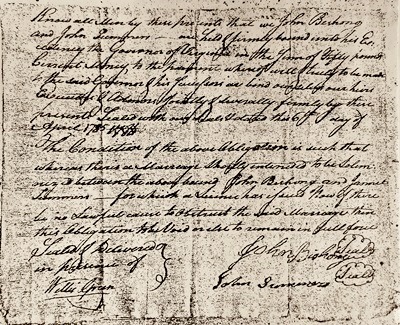 Know all Men by these presents that we John Bishong
and John Simmons are held & firmly bound unto his Ex
celency the Governor of Virginia in the Sum of Fifty pounds
Current Money to the payment whereof well & truly to be made
to the said Governor & his Successors we bind ourselves our heirs
Executors & Admors jointly & severally firmly by these
presents Sealed with our Seals & dated this day of
April 178
The Condition of the above Obligation is such that
whereas there is a Marriage Shortly intended to be Solem
nized between the above bound John Bishong and
Simmons for which a License has Issued Now if there
be no Lawful cause to Obstruct the said Marriage then
this Obligation to be Void or else to remain in full force
Sealed & Delivered
in presence of
John Bishong Seal
John Simmons Seal